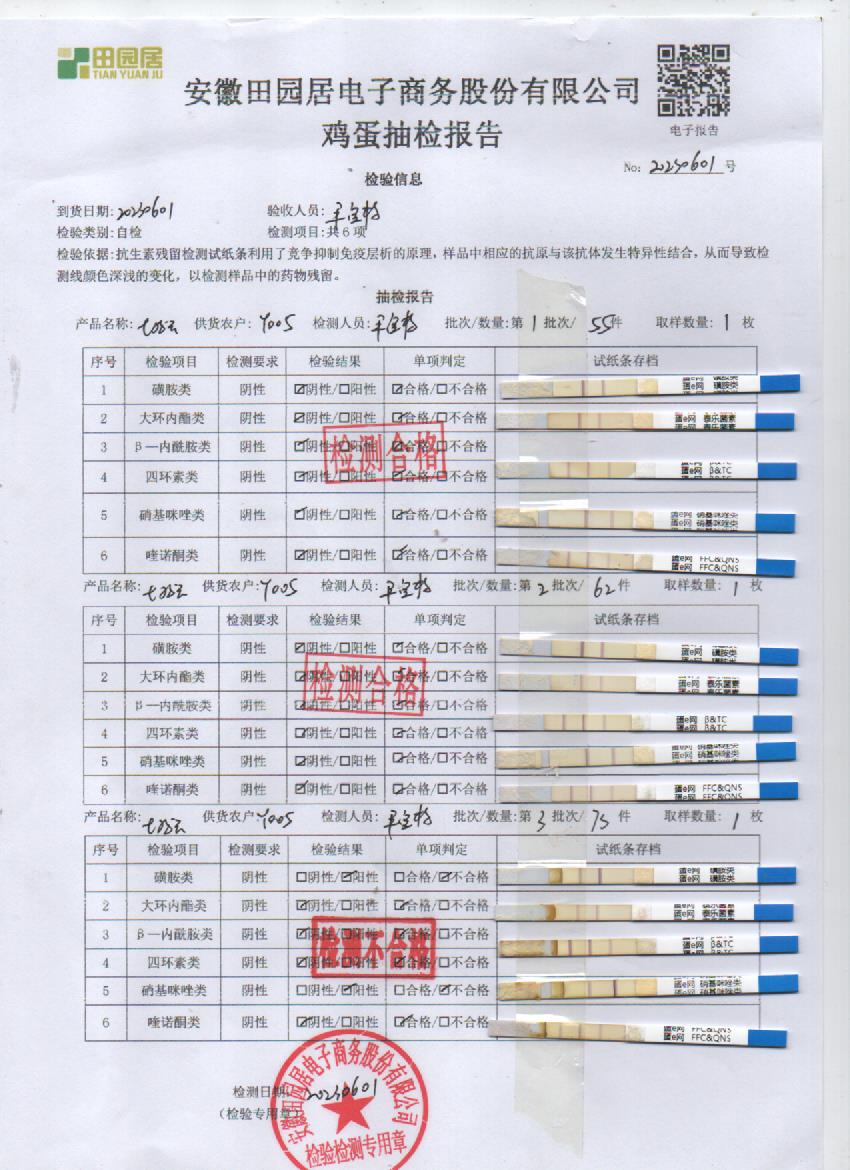 田园居
TIAN YUAN JU
安徽田园居电子商务股份有限公司
鸡蛋抽检报告
电子报告
No: 20230601 号
检验信息
到货日期: 20230601 验收人员:
检验类别: 自检 检测项目: 共6项
检验依据: 抗生素残留检测试纸条利用了竞争抑制免疫层析的原理, 样品中相应的抗原与该抗体发生特异性结合, 从而导致检
测线颜色深浅的变化, 以检测样品中的药物残留。
抽检报告
产品名称: 供货农户: Y005 检测人员: 批次/数量: 第 1 批次/ 55 件 取样数量: 1 枚
序号 检验项目 检测要求 检验结果 单项判定 试纸条存档
1 磺胺类 阴性 ☑阴性/☐阳性 ☑合格/☐不合格 蛋e网 磺胺类
2 大环内酯类 阴性 ☑阴性/☐阳性 ☑合格/☐不合格 蛋e网 泰乐菌素
3 β—内酰胺类 阴性 ☑阴性/☐阳性 ☑合格/☐不合格
4 四环素类 阴性 ☑阴性/☐阳性 ☑合格/☐不合格 蛋e网 β&TC
5 硝基咪唑类 阴性 ☑阴性/☐阳性 ☑合格/☐不合格 蛋e网 硝基咪唑类
6 喹诺酮类 阴性 ☑阴性/☐阳性 ☑合格/☐不合格 蛋e网 FFC&QNS
检测合格
产品名称: 供货农户: Y005 检测人员: 批次/数量: 第 2 批次/ 62 件 取样数量: 1 枚
序号 检验项目 检测要求 检验结果 单项判定 试纸条存档
1 磺胺类 阴性 ☑阴性/☐阳性 ☑合格/☐不合格 蛋e网 磺胺类
2 大环内酯类 阴性 ☑阴性/☐阳性 ☑合格/☐不合格 蛋e网 泰乐菌素
3 β—内酰胺类 阴性 ☑阴性/☐阳性 ☑合格/☐不合格
4 四环素类 阴性 ☑阴性/☐阳性 ☑合格/☐不合格 蛋e网 β&TC
5 硝基咪唑类 阴性 ☑阴性/☐阳性 ☑合格/☐不合格 蛋e网 硝基咪唑类
6 喹诺酮类 阴性 ☑阴性/☐阳性 ☑合格/☐不合格 蛋e网 FFC&QNS
检测合格
产品名称: 供货农户: Y005 检测人员: 批次/数量: 第 3 批次/ 75 件 取样数量: 1 枚
序号 检验项目 检测要求 检验结果 单项判定 试纸条存档
1 磺胺类 阴性 ☐阴性/☑阳性 ☐合格/☑不合格 蛋e网 磺胺类
2 大环内酯类 阴性 ☑阴性/☐阳性 ☑合格/☐不合格 蛋e网 泰乐菌素
3 β—内酰胺类 阴性 ☑阴性/☐阳性 ☑合格/☐不合格 蛋e网 β&TC
4 四环素类 阴性 ☑阴性/☐阳性 ☑合格/☐不合格
5 硝基咪唑类 阴性 ☐阴性/☑阳性 ☐合格/☑不合格 蛋e网 硝基咪唑类
6 喹诺酮类 阴性 ☑阴性/☐阳性 ☑合格/☐不合格 蛋e网 FFC&QNS
检测不合格
检测日期: 20230601
(检验专用章)
安徽田园居电子商务股份有限公司
检验检测专用章